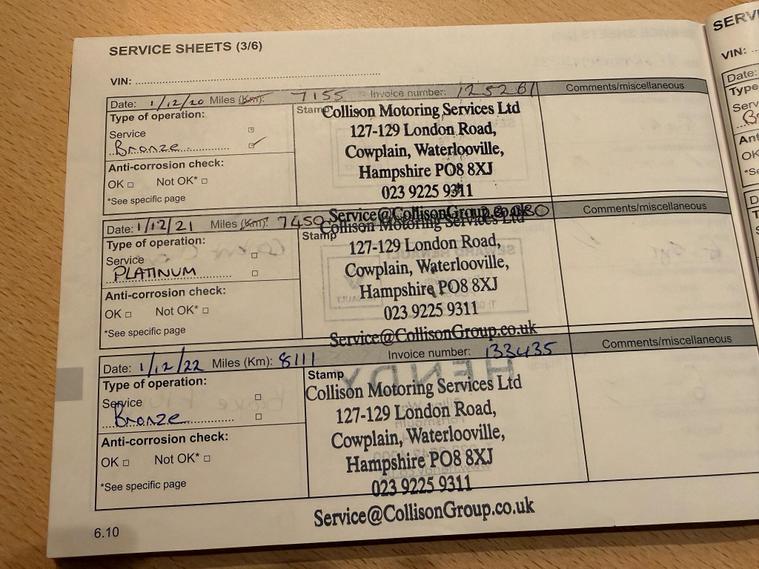 SERVICE SHEETS (3/6)
SERV
VIN:
VIN:
Date: 1/12/20 Miles (Km): 7155 Invoice number: 125261 Comments/miscellaneous
Type of operation:
Service
Bronze
Anti-corrosion check:
OK Not OK*
*See specific page
Stamp
Collison Motoring Services Ltd
127-129 London Road,
Cowplain, Waterlooville,
Hampshire PO8 8XJ
023 9225 9311
Service@CollisonGroup.co.uk
Date: 1/12/21 Miles (Km): 7450 Comments/miscellaneous
Type of operation:
Service
PLATINUM
Anti-corrosion check:
OK Not OK*
*See specific page
Stamp
Collison Motoring Services Ltd
127-129 London Road,
Cowplain, Waterlooville,
Hampshire PO8 8XJ
023 9225 9311
Service@CollisonGroup.co.uk
Date: 1/12/22 Miles (Km): 8111 Invoice number: 133435 Comments/miscellaneous
Type of operation:
Service
Bronze
Anti-corrosion check:
OK Not OK*
*See specific page
Stamp
Collison Motoring Services Ltd
127-129 London Road,
Cowplain, Waterlooville,
Hampshire PO8 8XJ
023 9225 9311
Service@CollisonGroup.co.uk
6.10
Date:
Type